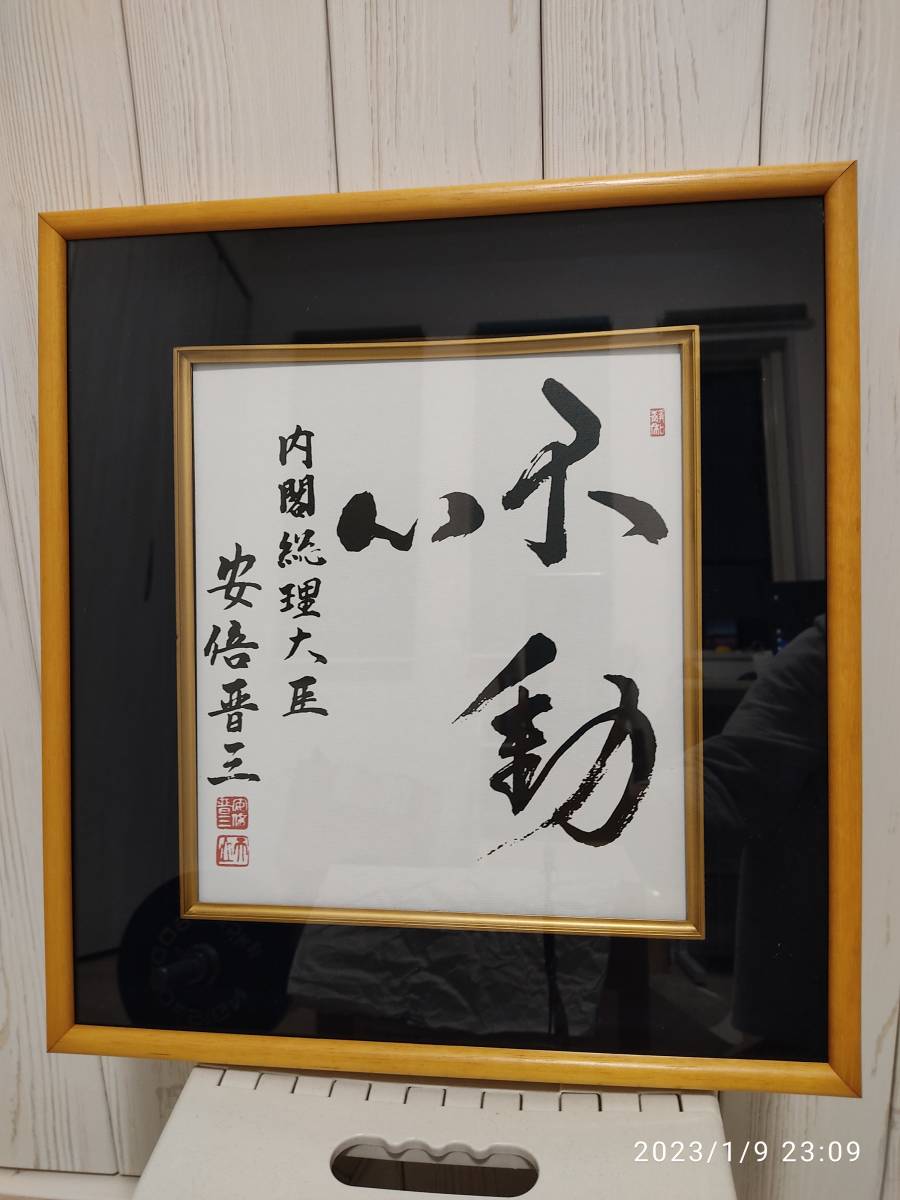 不動
心
内閣総理大臣
安倍晋三
安倍晋三
2023/1/9 23:09